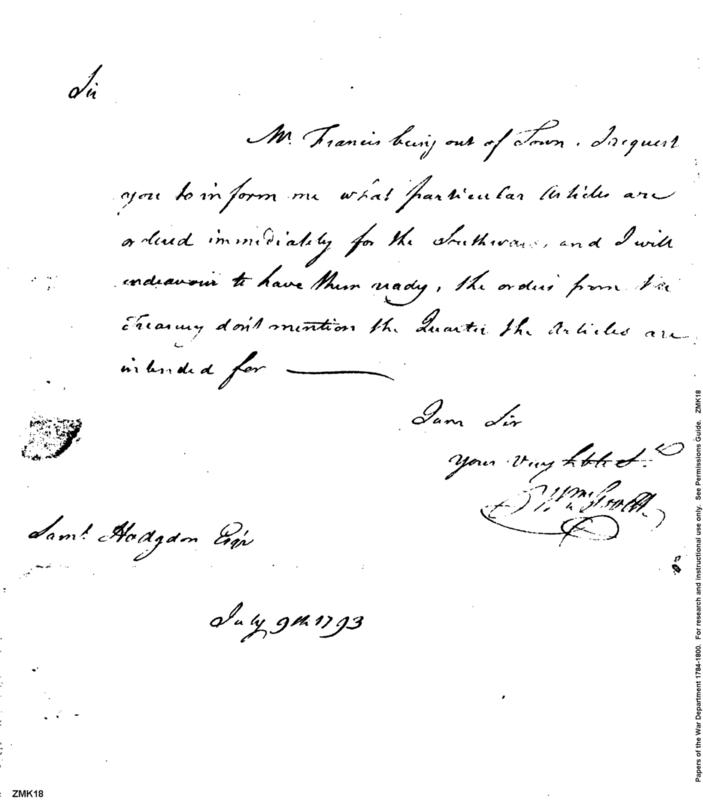 Sir
Mr. Francis being out of Town. I request
you to inform me what particular Articles are
ordered immediately for the Southward, and I will
endeavour to have them ready, the orders from the
Treasury don't mention the Quarter the Articles are
intended for ———
I am Sir
your very Hble St.
Wm
Saml. Hodgdon Esqr
July 9th 1793
ZMK18
Papers of the War Department 1784-1800. For research and instructional use only. See Permissions Guide. ZMK18